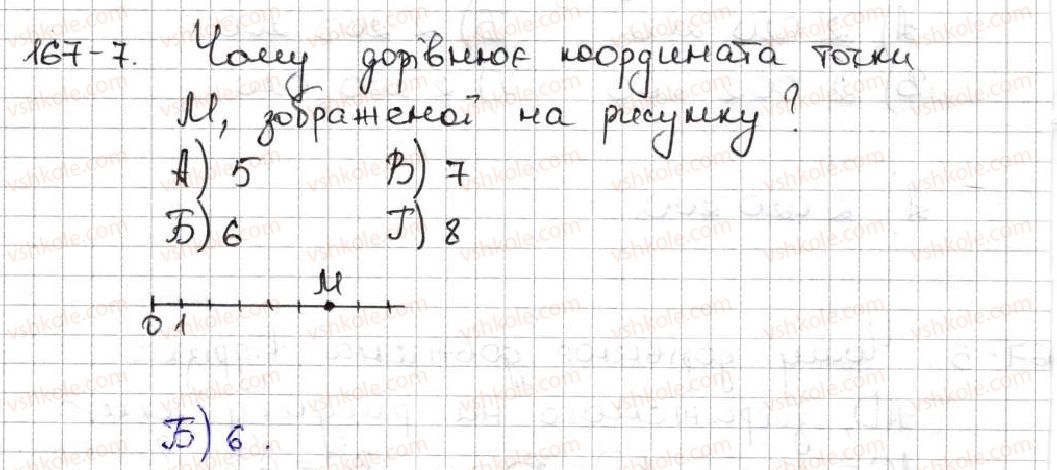 167-7. Чому дорівнює координата точки
М, зображеної на рисунку?
А) 5 В) 7
Б) 6 Г) 8
М
0 1
Б) 6.